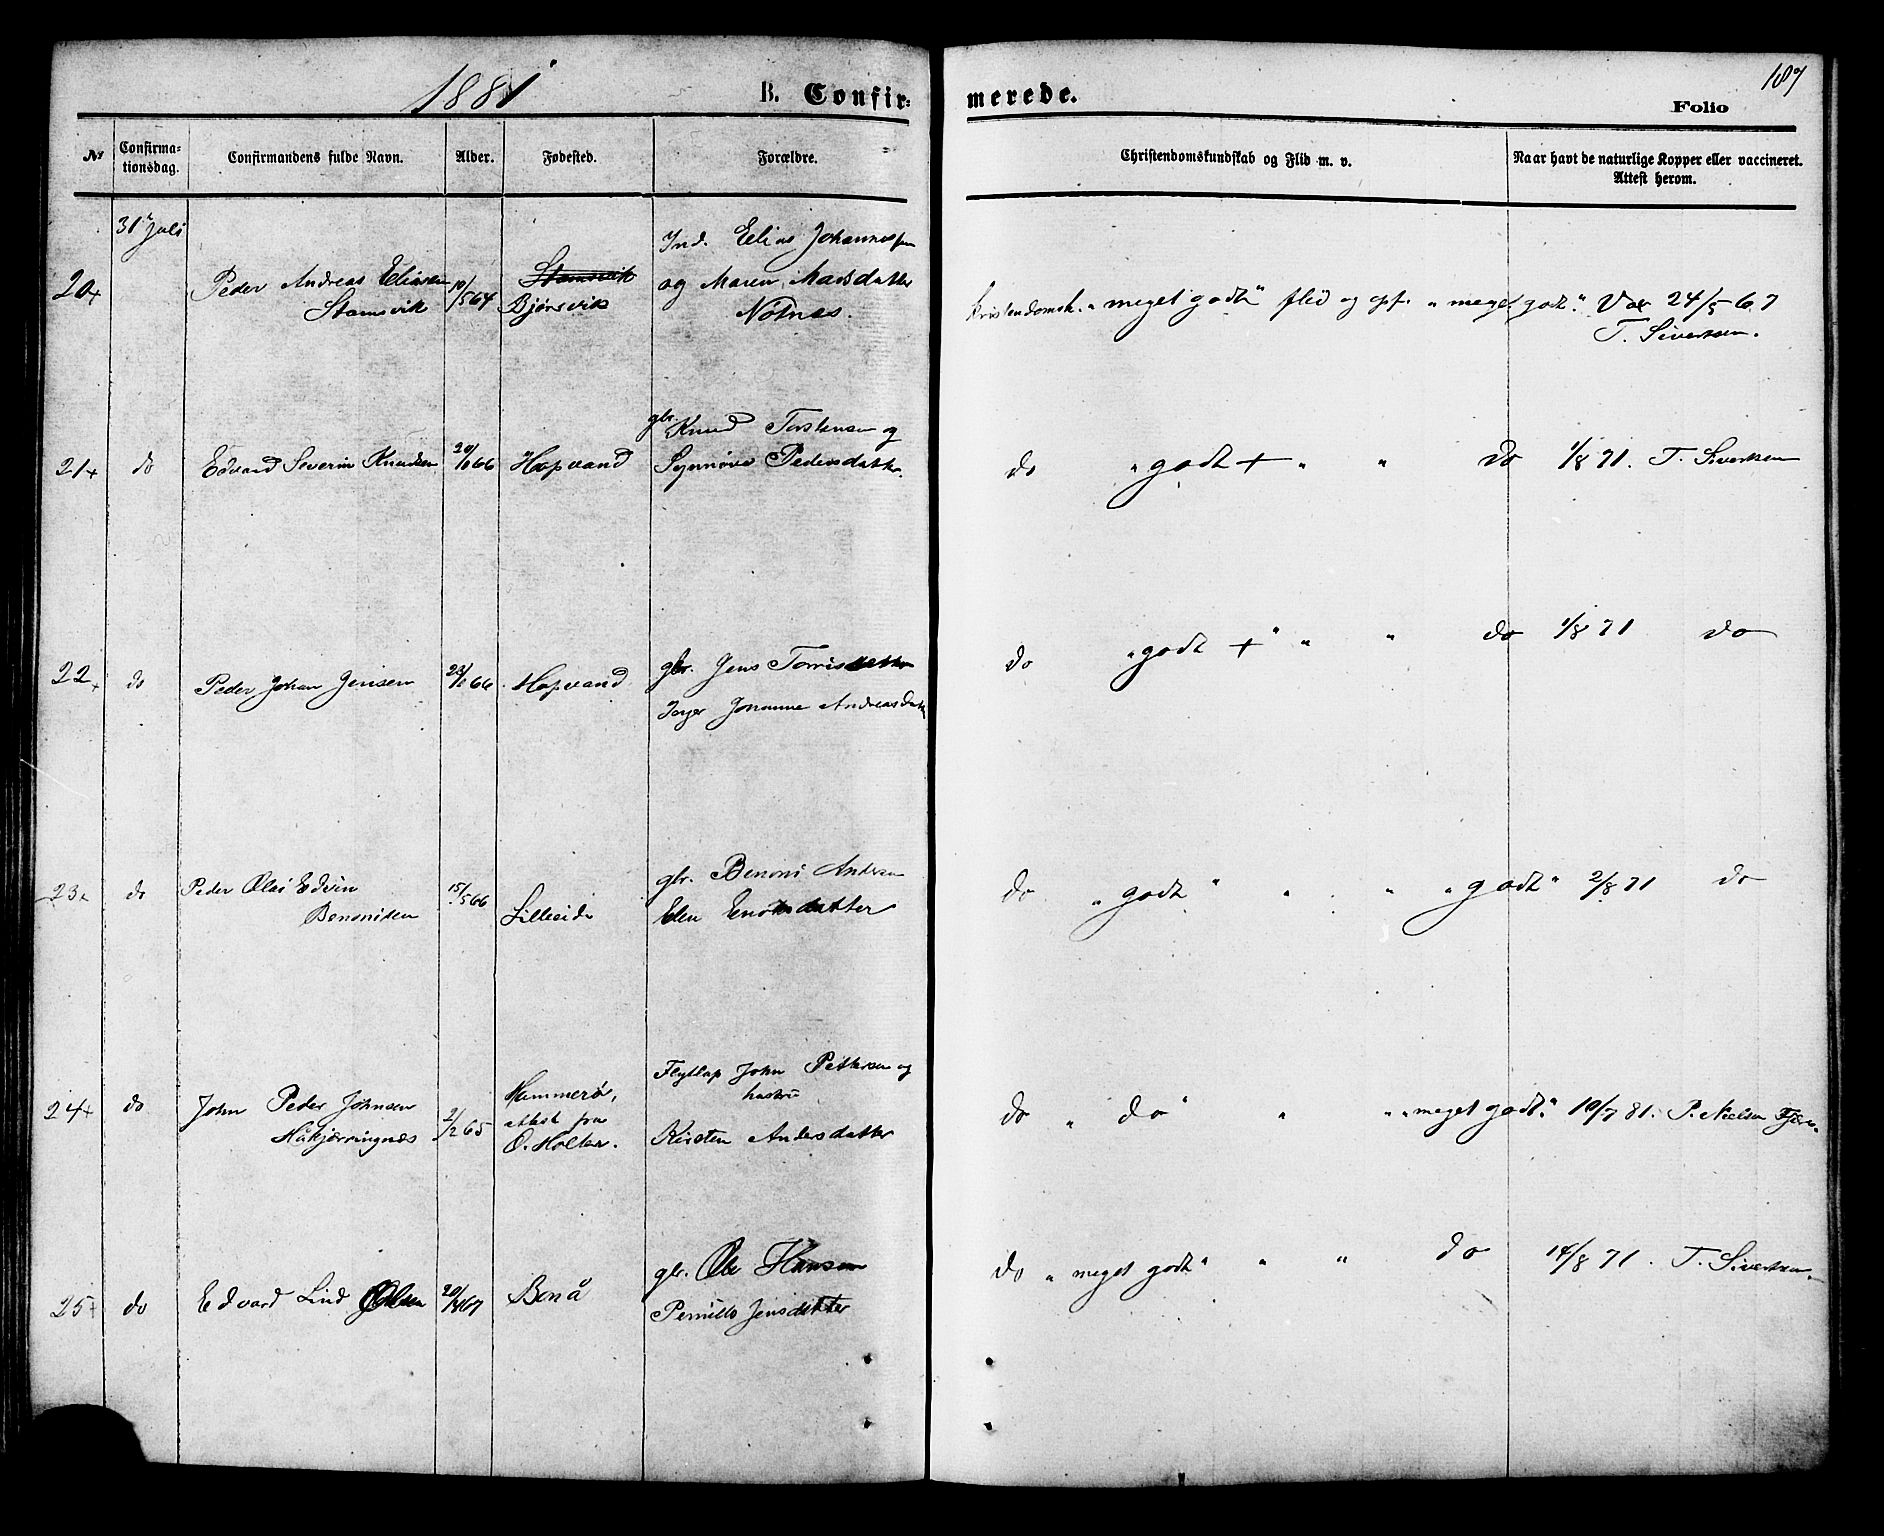 1881
B. Confir-
merede.
187
Folio
No
Confirma-
tionsdag.
Confirmandens fulde Navn.
Alder.
Fødested.
Forældre.
Christendomskundskab og Flid m. v.
Naar havt de naturlige Kopper eller vaccineret.
Attest herom.
31 Juli
20+ Peder Andreas Eliasen 10/5 64 Stamsvik Ind. Elias Johannessen
Stamsvik Bjørsvik og Maren Madsdatter
Notnæs.
kristendomsk. "meget godt" flid og opf. "meget godt." Vac 24/5 67
T. Sivertsen.
21+ do Edvard Severin Knudsen 20/ 66 Hopvand gbr. Knud Torstensen og
Synnøve Pedersdatter.
do "godt + " " do 1/8 71. T. Sivertsen
22+ do Peder Johan Jensen 66 Hopvand gbr. Jens Torris
Inger Johanna Andreasdat
do "godt +" " " do 1/8 71 do
23 do Peder Olai Edvin 15/5 66 Lilleeide gbr. Benoni Andersen
Benonisen Elen Enoksdatter
do "godt" " " "godt" 2/8 71 do
24+ do John Peder Johnsen 2/2 65 Hammerø, Flytlap John Pettersen og
Håkjærringnæs attest fra hustru
O. Holter. Kirsten Andersdatter
do "do" " " "meget godt." 10/7 81. P. Nielsen
25+ do Edvard Lind Olsen 67 Bonå gbr. Ole Hansen
Pernille Jensdatter
do "meget godt" " " do 14/8 71. T. Sivertsen.